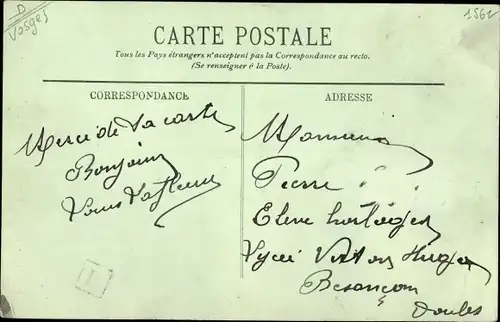 D
Vosges
1561
CARTE POSTALE
Tous les Pays étrangers n'acceptent pas la Correspondance au recto.
(Se renseigner à la Poste).
CORRESPONDANCE
ADRESSE
Merci de la carte
Bonjour
Monsieur
Pierre
Elève horloger
Lycée Victor Hugo
Besançon
Doubs
L